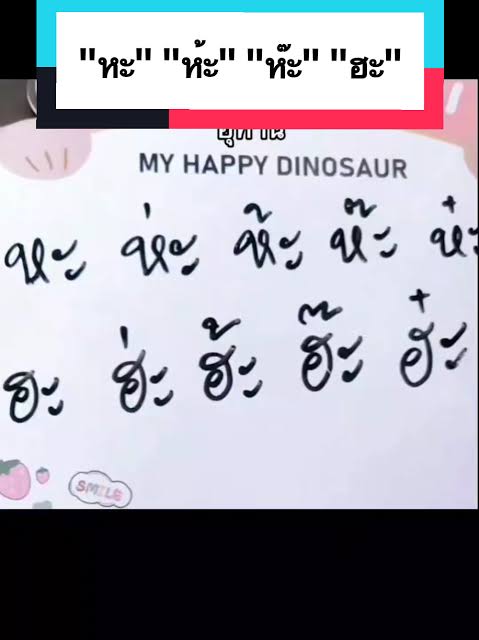 "หะ" "ห้ะ" "ห๊ะ" "ฮะ"
MY HAPPY DINOSAUR
หะ ห่ะ ห้ะ ห๊ะ ห๋ะ
ฮะ ฮ่ะ ฮ้ะ ฮ๊ะ ฮ๋ะ
SMILE